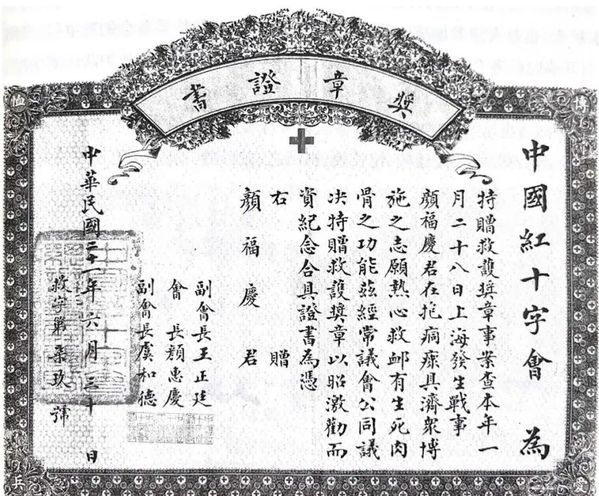 獎章證書
中國紅十字會 為
特贈救護獎章事案查本年一
月二十八日上海發生戰事
顏福慶君在抱痌瘝具濟眾博
施之志願熱心救卹有生死肉
骨之功能茲經常議會公同議
決特贈救護獎章以昭激勸而
資紀念合具證書為憑
右 贈
顏福慶 君
副會長王正廷
會 長顏惠慶
副會長虞和德
中華民國二十一年六月三十 日
救字第柒玖號
博
愛
恤
兵